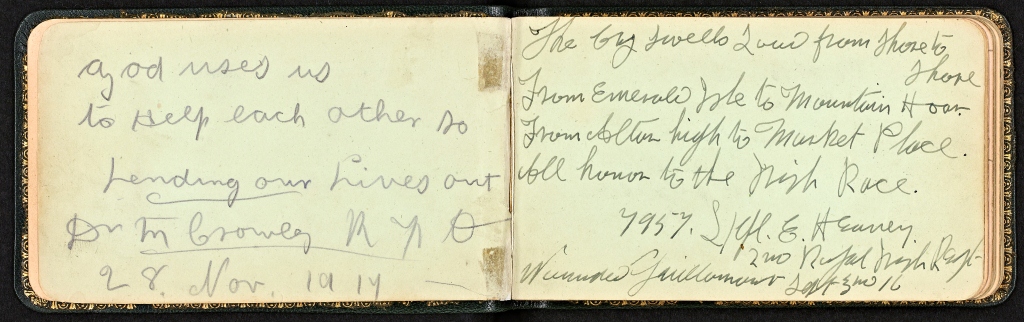 God uses us
to Help each other so
Lending our Lives out
Dr M Crowley R F A
28. Nov. 1917
The Cry swells Loud from Shore to
Shore
From Emerald Isle to Mountain Hoar
From Altar high to Market Place.
All honor to the Irish Race.
7957. L/Cpl. E. Heaney.
2nd Royal Irish Regt
Wounded Guillemont Sept 3rd 16